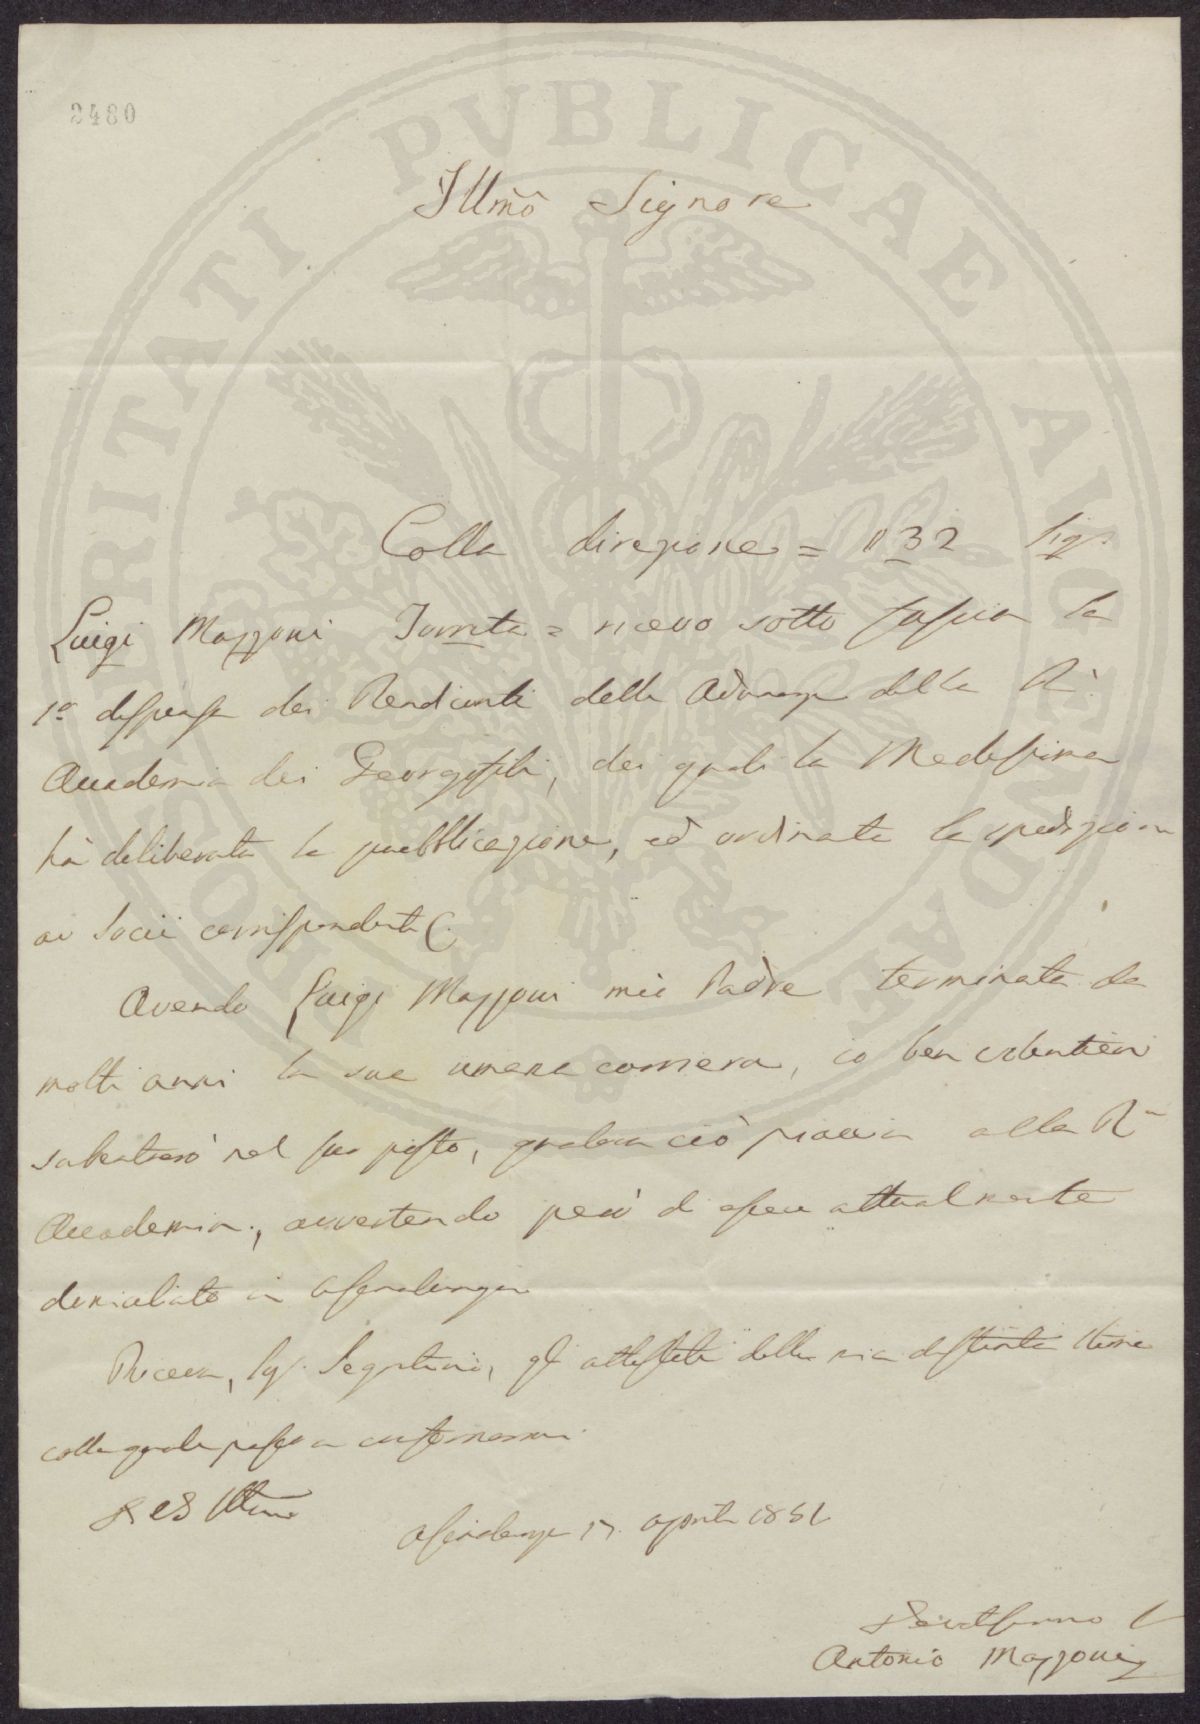 2480
PROSPERITATI PVBLICAE AVGENDAE
Illmô Signore
Colla direzione = 1132 Sigr.
Luigi Mazzoni Torrita = ricevo sotto fascia la
1a. dispensa dei Rendiconti delle Adunanze della R.
Accademia dei Georgofili, dei quali la Medesima
hà deliberata la pubblicazione, ed ordinata la spedizione
ai Socii corrispondenti.
Avendo Luigi Mazzoni mio Padre terminata da
molti anni la sua umana carriera, io ben volentieri
subentrerò nel suo posto, qualora ciò piaccia alla R.
Accademia, avvertendo però di essere attualmente
domiciliato in Asinalunga
Riceva, Sigr. Segretario, gli attestati della mia distinta stima
colla quale passo a confermarmi
Asinalunga 17. aprile 1851
Antonio Mazzoni